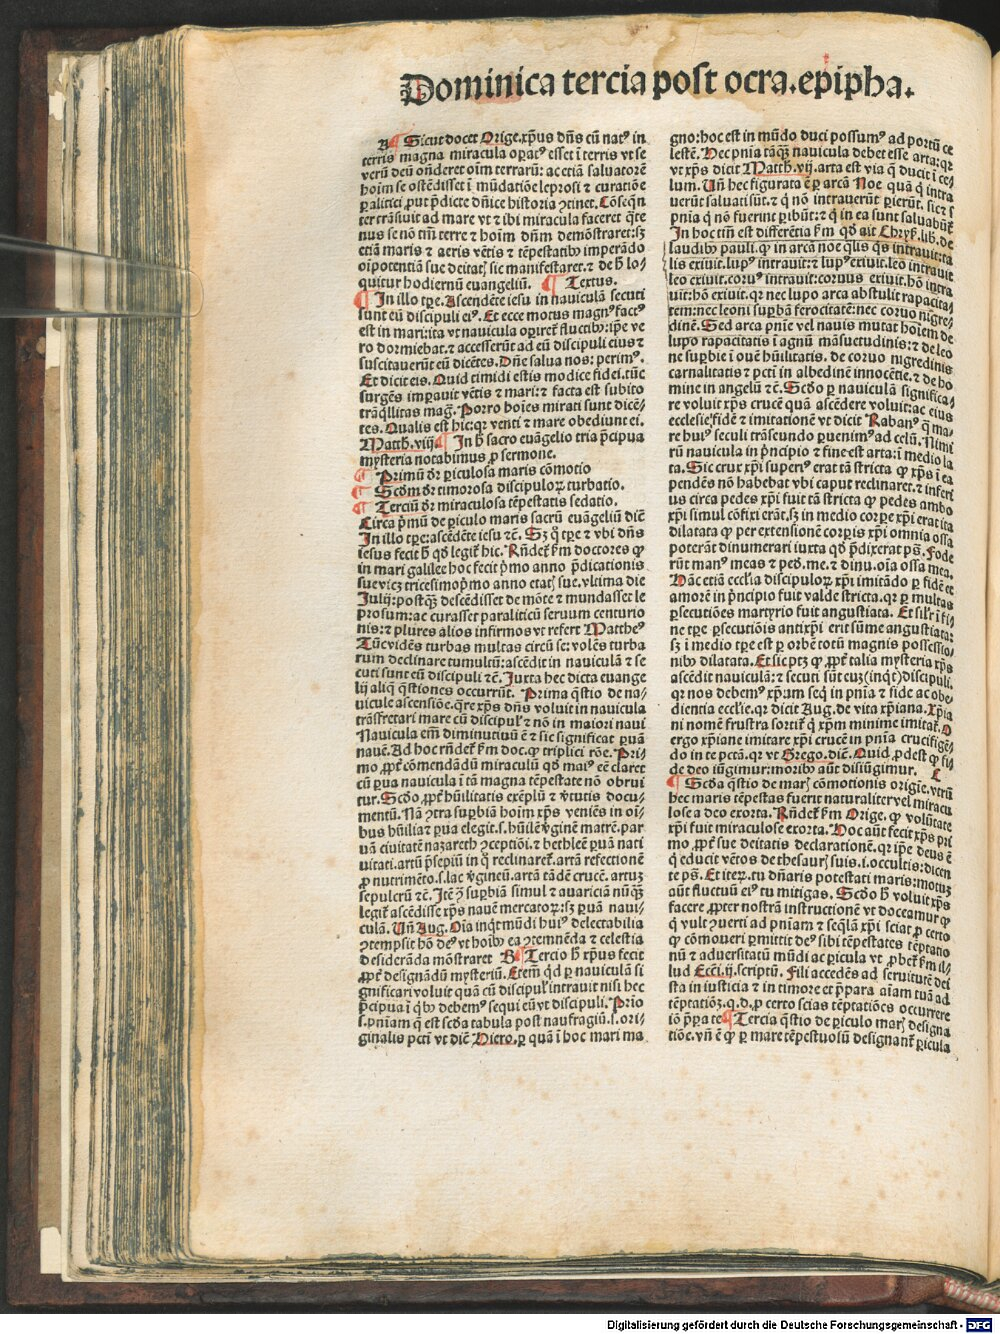 Dominica tercia post octa. epipha.
A ¶ Sicut docet Orige. xp̄us dn̄s cū natꝰ in
terris magna miracula oꝑatꝰ esset ī terris vt se
verū deū oñderet oīm terrarū: ac etiā saluatorē
hoīm se ostēdisset ī mūdatiōe leprosi ⁊ curatiōe
ꝑalitici ꝓut p̄dicte dn̄ice historia ↄtinet. Cōseqn̄
ter trāsiuit ad mare vt ⁊ ibi miracula faceret qͥ te
nus se nō tm̄ terre ⁊ hoīm dn̄m demōstraret: sꝫ
etiā maris ⁊ aeris vētis ⁊ tēpestatibꝰ imperādo
oīpotentiā sue deitat͛ sic manifestaret. ⁊ de h̄ lo⸗
quitur hodiernū euangeliū. ¶ Textus.
¶ In illo tꝑe. Ascendēte iesu in nauiculā secuti
sunt eū discipuli eiꝰ. Et ecce motus magnꝰ factꝰ
est in mari: ita vt nauicula oꝑiret͛ fluctibꝰ: ip̄e ve
ro dormiebat. ⁊ accesserūt ad eū discipuli eius ⁊
suscitauerūt eū dicētes. Dn̄e salua nos: perimꝰ.
Et dicit eis. Quid timidi estis modice fidei. tūc
surgēs imꝑauit vētis ⁊ mari: ⁊ facta est subito
trāq̄llitas maḡ. Porro hoīes mirati sunt dicē⸗
tes. Qualis est hic: qꝛ venti ⁊ mare obediunt ei.
Matth. viij. ¶ In h̄ sacro euāgelio tria p̄cipua
mysteria notabimus ꝓ sermone.
¶ Primū dr̄ ꝑiculosa maris cōmotio
¶ Scd̄m dr̄ timorosa discipuloꝝ turbatio.
¶ Terciū dr̄ miraculosa tēpestatis sedatio.
Circa p̄mū de ꝑiculo maris sacrū euāgeliū dic̄
In illo tꝑe: ascēdēte iesu ⁊c̄. Sꝫ q̊ tꝑe ⁊ vbi dn̄s
iesus fecit h̄ qd̓ legit͛ hic. Rn̄det͛ ẜm doctores ꝙ
in mari galilee hoc fecit p̄mo anno p̄dicationis
sue vicꝫ tricesimop̄mo anno etat͛ sue. vltima die
Julij: postqͣꝫ descēdisset de mōte ⁊ mundasset le
prosum: ac curasset paraliticū seruum centurio
nis: ⁊ plures alios infirmos vt refert Mattheꝰ
Tūc vidēs turbas multas circū se: volēs turba
rum declinare tumultū: ascēdit in nauiculā ⁊ se
cuti sunt eū discipuli ⁊c̄. Juxta hec dicta euange
lij aliq̄ q̄stiones occurrūt. Prima q̄stio de na⸗
uicule ascensiōe. qͣre xp̄s dn̄s voluit in nauicula
trāsfretari mare cū discipul̓ ⁊ nō in maiori naui
Nauicula em̄ diminutiuū ē ⁊ sic significat ꝑuā
nauē. Ad hoc rn̄det͛ ẜm doc. ꝙ triplici rōe. Pri⸗
mo ꝓpt̄ cōmendādū miraculū qd̓ maiꝰ eē claret
cū ꝑua nauicula ī tā magna tēpestate nō obrui
tur. Scd̓o ꝓpt̄ hūilitatis exēplū ⁊ v̓tutis docu⸗
mentū. Nā ↄtra suꝑbiā hoīm xp̄s veniēs in oī⸗
bus hūilia ⁊ ꝑua elegit. s. hūilē v̓ginē matrē. par
uā ciuitatē nazareth ↄceptiōi. ⁊ bethleē ꝑuā nati
uitati. artū p̄sepiū in q̊ reclinaret͛. artā refectionē
ꝓ nutrimēto. s. lac v̓gineū. artā tādē crucē. artuꝫ
sepulcrū ⁊c̄. Itē ↄ̄ suꝑbiā simul ⁊ auariciā nūqͣꝫ
legit͛ ascēdisse xp̄s nauē mercatoꝝ: sꝫ ꝑuā naui⸗
culā. Vn̄ Aug. Oīa inqͥt mūdi huiꝰ delectabilia
ↄtempsit hō deꝰ vt hoībꝰ ea ↄtemnēda ⁊ celestia
desiderāda mōstraret B ¶ Tercio h̄ xp̄us fecit
ꝓpt̄ designādū mysteriū. Etem̄ qd̓ ꝑ nauiculā si
gnificari voluit quā cū discipul̓ intrauit nisi hec
p̄cipua ī qͥbꝰ debemꝰ sequi eū vt discipuli. Prio
s. pn̄iam q̄ est scd̓a tabula post naufragiū. s. ori⸗
ginalis pctī vt dic̄ Hiero. ꝑ quā ī hoc mari ma
gno: hoc est in mūdo duci possumꝰ ad portū ce
lestē. Hec pn̄ia tāqͣꝫ nauicula debet esse arta: qꝛ
vt xp̄s dicit Matth. vij. arta est via q̄ ducit ī ce⸗
lum. Vn̄ hec figurata ē ꝑ arcā Noe quā q̄ intra
uerūt saluati sūt. ⁊ q̄ nō intrauerūt ꝑierūt. sic ⁊ s
pn̄ia q̄ nō fuerint ꝑibūt: ⁊ q̄ in ea sunt saluabūt͛
In hoc tn̄ est differētia ẜm qd̓ ait Chryẜ. lib. de
laudibꝰ pauli. ꝙ in arcā noe qͣlis qͥs intrauit: ta
lis exiuit. lupꝰ intrauit: ⁊ lupꝰ exiuit. leo intrauit
leo exiuit. coruꝰ intrauit: coruus exiuit. hō intra
uit: hō exiuit. qꝛ nec lupo arca abstulit rapacita⸗
tem: nec leoni suꝑbā ferocitatē: nec coruo nigre⸗
dinē. Sed arca pn̄ie vel nauis mutat hoīem de
lupo rapacitatis ī agnū māsuetudinis: ⁊ de leo
ne suꝑbie ī ouē hūilitatis. de coruo nigredinis
carnalitatis ⁊ pctī in albedinē innocētie. ⁊ de ho
mine in angelū ⁊c̄. Scd̓o ꝑ nauiculā significa⸗
re voluit xp̄s crucē quā ascēdere voluit: ac eius
ecclesie fidē ⁊ imitationē vt dicit Rabanꝰ q̄ ma⸗
re huiꝰ seculi trāseundo ꝑuenimꝰ ad celū. Nimi
rū nauicula in p̄ncipio ⁊ fine est arta: ī medio la
ta. Sic crux xp̄i superiꝰ erat tā stricta ꝙ xp̄s ī ea
pendēs nō habebat vbi caput reclinaret. ⁊ inferi
us circa pedes xp̄i fuit tā stricta ꝙ pedes ambo
xp̄i simul cōfixi erāt. sꝫ in medio corꝑe xp̄i erat ita
dilatata ꝙ per extensionē corꝑis xp̄i omnia ossa
poterāt dinumerari iuxta qd̓ p̄dixerat ps̄. Fode
rūt manꝰ meas ⁊ ped. me. ⁊ dinu. oīa ossa mea.
Hāc etiā eccl̓ia discipuloꝝ xp̄i imitādo ꝑ fidē et
amorē in p̄ncipio fuit valde stricta. qꝛ ꝑ multas
ꝑsecutiōes martyrio fuit angustiata. Et sil̓r ī fi⸗
ne tꝑe ꝑsecutiōis antixp̄i erit sūme angustiata:
sꝫ ī medio tꝑe est ꝑ orbē totū magnis possessio⸗
nibꝰ dilatata. Et sic ptꝫ ꝙ ꝓpt̄ talia mysteria xp̄s
ascēdit nauiculā: ⁊ secuti sūt euꝫ (inqͥt) discipuli.
qꝛ nos debemꝰ xp̄um seq̄ in pn̄ia ⁊ fide ac obe⸗
dientia eccl̓ie. qꝛ dicit Aug. de vita xp̄iana. Xp̄ia
ni nomē frustra sortit͛ q̄ xp̄m minime imitat͛. O
ergo xp̄iane imitare xp̄i crucē in pn̄ia crucifigē⸗
do in te pctā. qꝛ vt Grego. dic̄. Quid ꝓdest ꝙ fi⸗
de deo iūgimur: moribꝰ aūt disiūgimur. C
¶ Scd̓a q̄stio de mar͛ cōmotionis origīe. vtrū
hec maris tēpestas fuerit naturaliter vel miracu
lose a deo exorta. Rn̄det͛ ẜm Orige. ꝙ volūtate
xp̄i fuit miraculose exorta. Hoc aūt fecit xp̄s pri
mo ꝓpt̄ sue deitatis declarationē. qꝛ ip̄e deus ē
q̄ educit vētos de thesaur͛ suis. i. occultis: dicen
te ps̄. Et iteꝝ. tu dn̄aris potestati maris: motuꝫ
aūt fluctuū eiꝰ tu mitigas. Scd̓o h̄ voluit xp̄s
facere ꝓpter nostrā instructionē vt doceamur ꝙ
q̄ vult ↄuerti ad pn̄iam ⁊ seq̄lā xp̄i sciat ꝓ certo
ꝙ cōmoueri ꝑmittit deꝰ sibi tēpestates tēptatio
nū ⁊ aduersitatū mūdi ac ꝑicula vt ꝓbet͛ ẜm il⸗
lud Ecc̄i. ij. scriptū. Fili accedēs ad seruitutē dei
sta in iusticia ⁊ in timore et p̄para aīam tuā ad
tēptatiōꝫ. q. d. ꝓ certo scias tēptatiōes occurrere
iō p̄pa te ¶ Tercia q̄stio de ꝑiculo mar͛ designa
tiōe. vn̄ ē ꝙ ꝑ mare tēpestuosū designant͛ ꝑicula
Digitalisierung gefördert durch die Deutsche Forschungsgemeinschaft - DFG